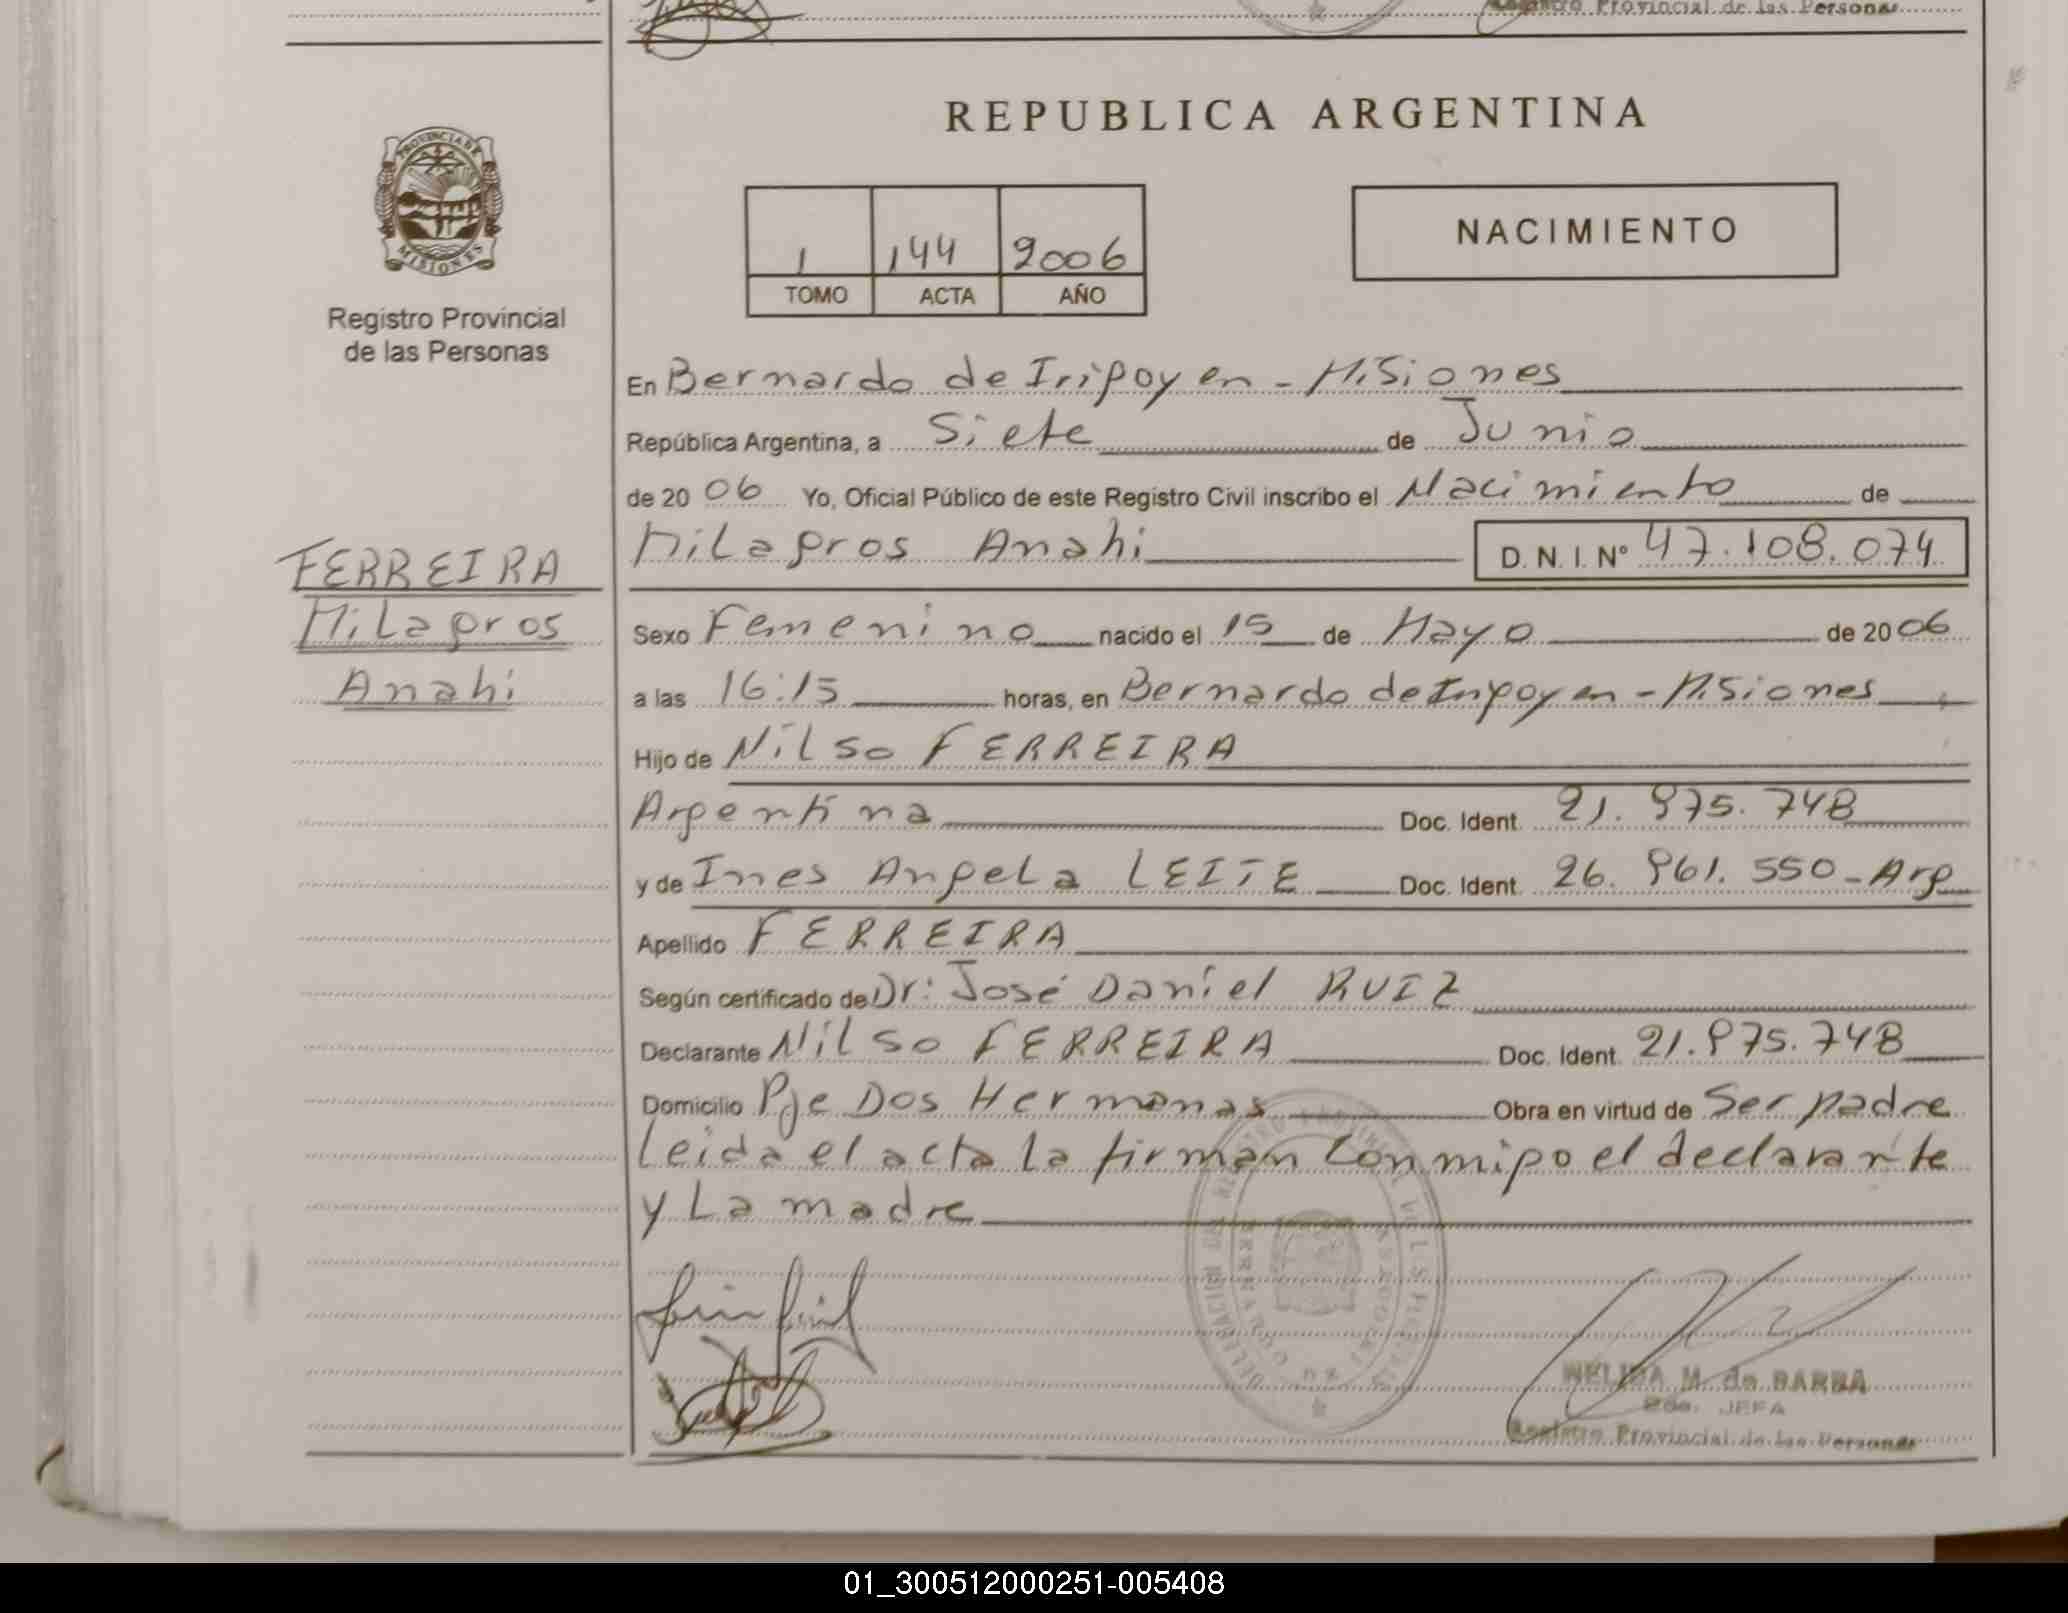 Registro Provincial de las Personas
REPUBLICA ARGENTINA
PROVINCIA DE
MISIONES
Registro Provincial
de las Personas
1 144 2006
TOMO ACTA AÑO
NACIMIENTO
En Bernardo de Iripoyen - Misiones
República Argentina, a Siete de Junio
de 2006 Yo, Oficial Público de este Registro Civil inscribo el Nacimiento de
Milagros Anahi D. N. I. Nº 47.108.074
FERREIRA
Milagros
Anahi
Sexo Femenino nacido el 15 de Mayo de 2006
a las 16:15 horas, en Bernardo de Iripoyen - Misiones
Hijo de Nilso FERREIRA
Argentina Doc. Ident. 21.975.748
y de Ines Angela LEITE Doc. Ident. 26.961.550 - Arg
Apellido FERREIRA
Según certificado de Dr: José Daniel RUIZ
Declarante Nilso FERREIRA Doc. Ident. 21.975.748
Domicilio Pje Dos Hermanas Obra en virtud de Ser padre
Leida el acta la firman Conmigo el declarante
y La madre
NELIDA M. de BARBA
2da. JEFA
Registro Provincial de las Personas
01_300512000251-005408